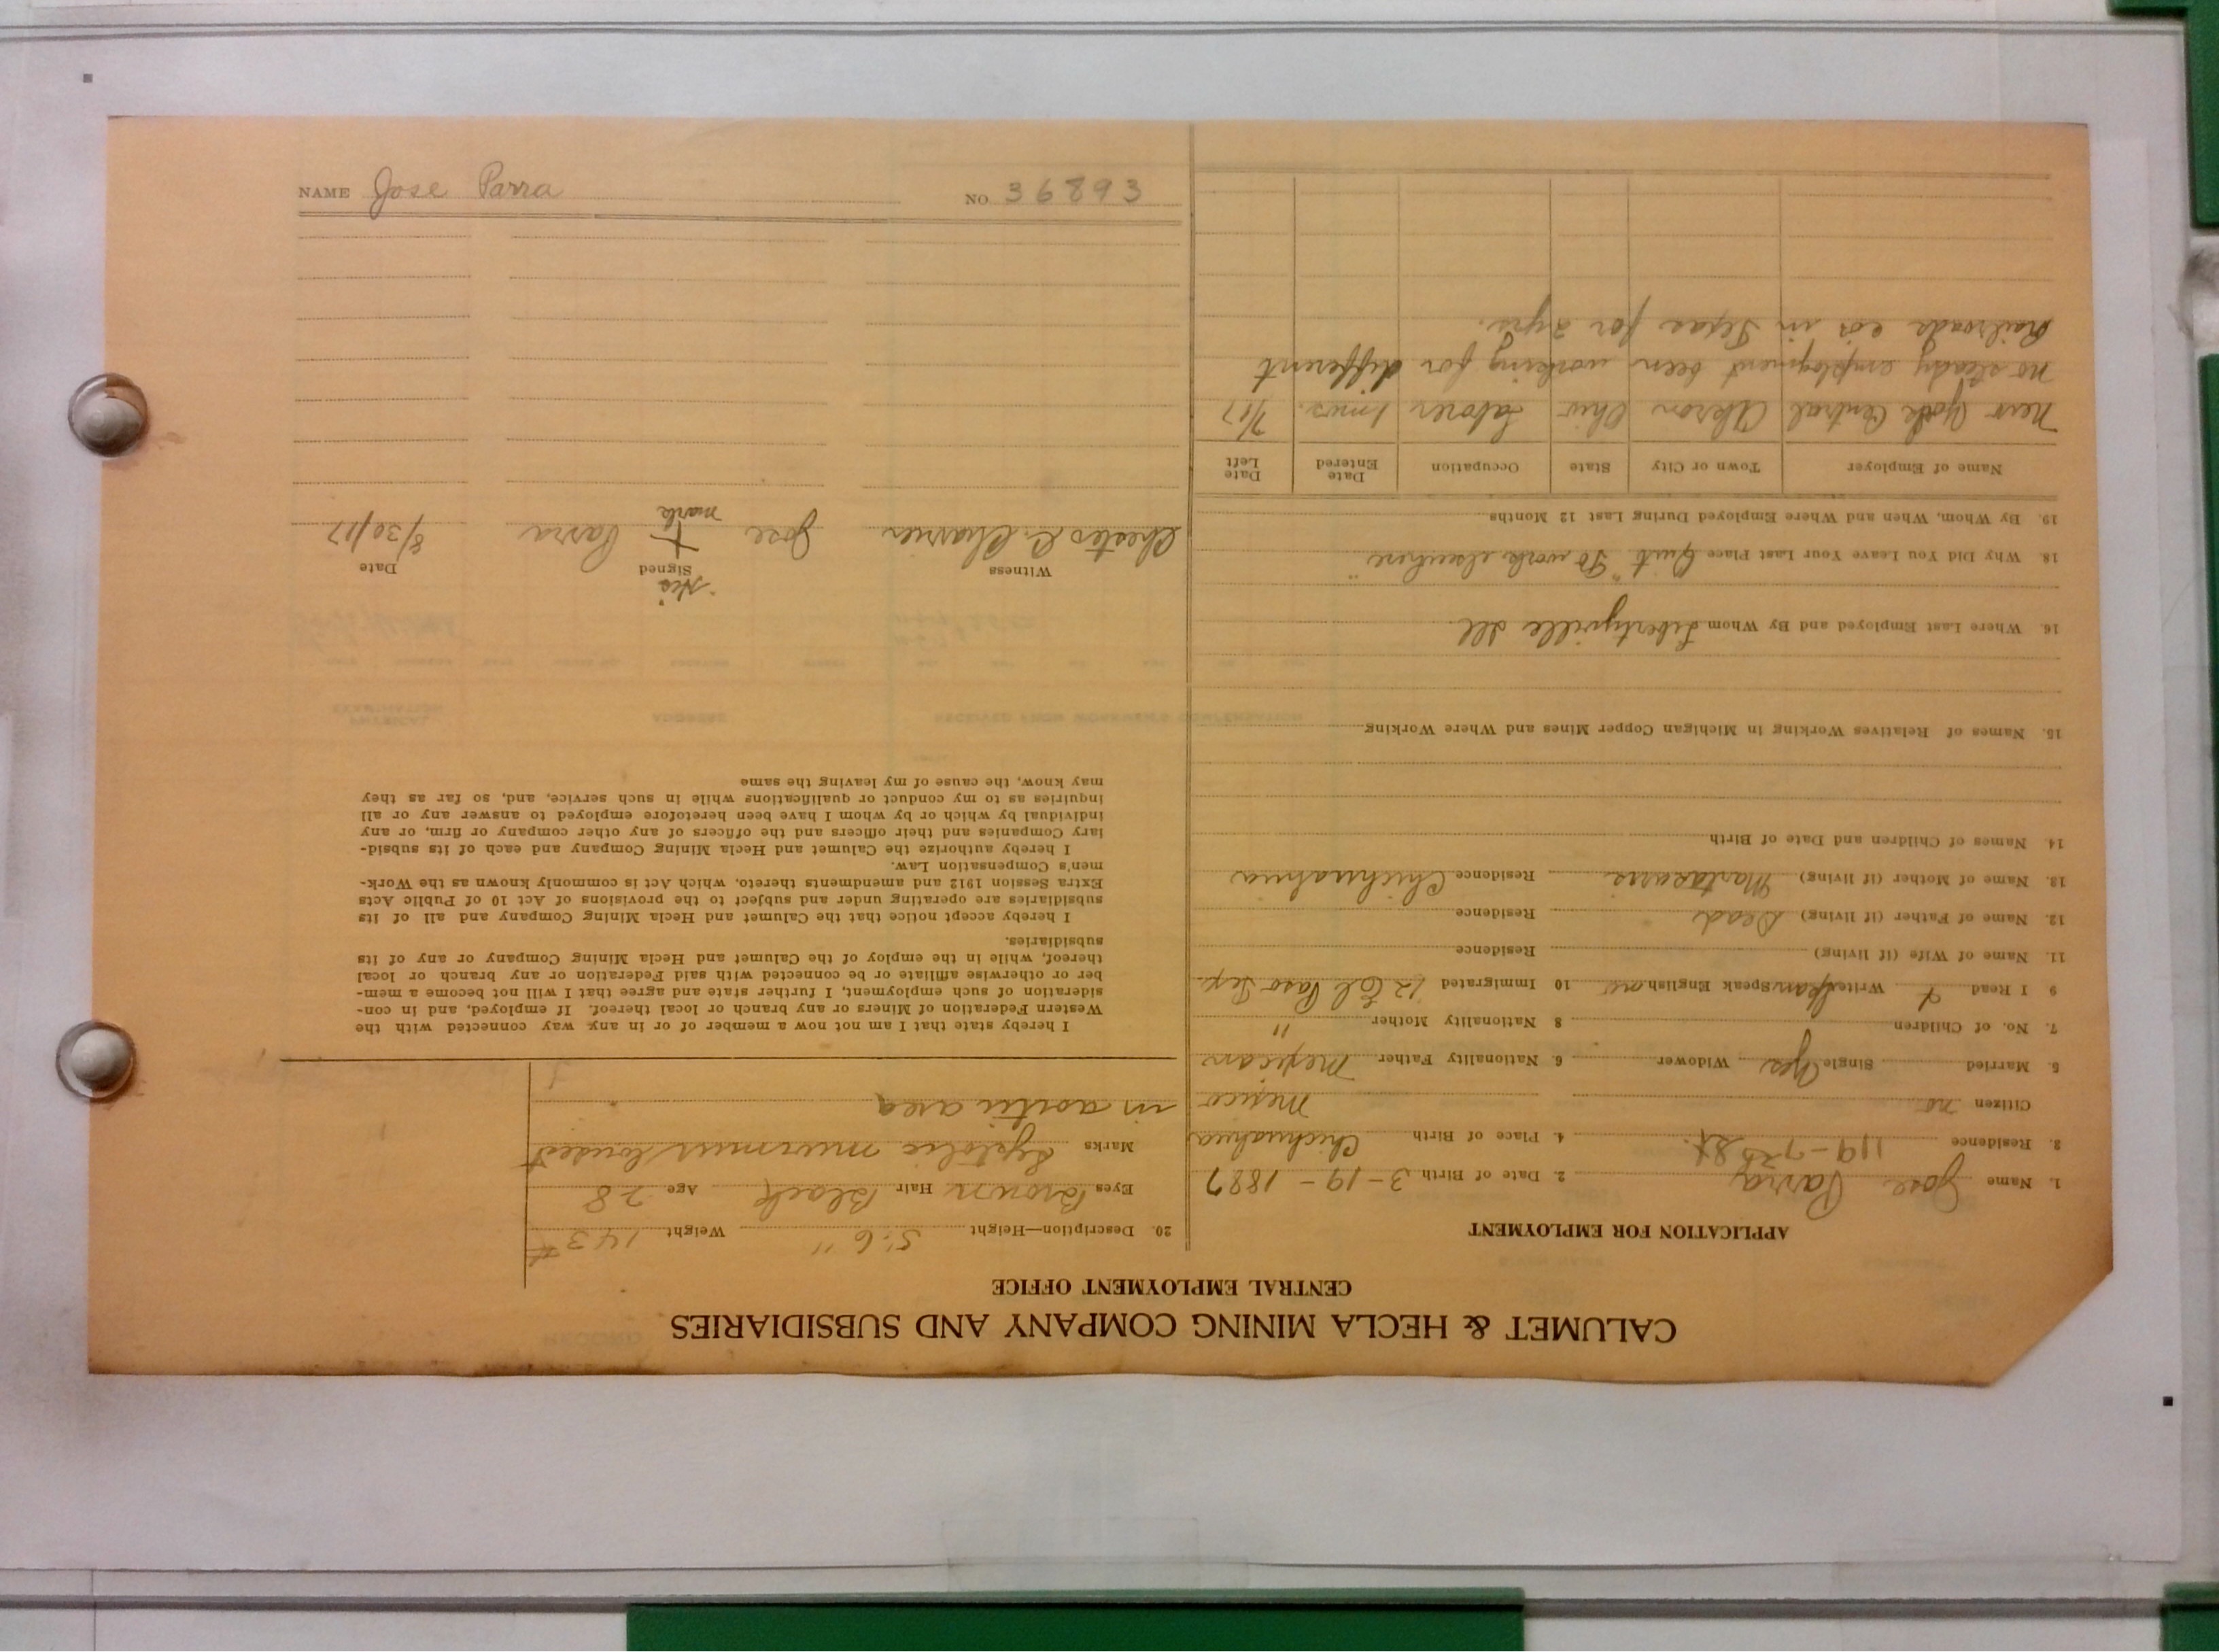 NAME Jose Parra NO. 36893
CALUMET & HECLA MINING COMPANY AND SUBSIDIARIES
CENTRAL EMPLOYMENT OFFICE
APPLICATION FOR EMPLOYMENT
1. Name Jose Parra 2. Date of Birth 3-19-1887
3. Residence 119-7 St. 4. Place of Birth Chichuahua
Citizen no Mexico
5. Married Single Yes Widower 6. Nationality Father Mexican
7. No. of Children 8 Nationality Mother "
9 I Read Write Speak English 10 Immigrated 12 El Paso Tex.
11. Name of Wife (if living) Residence
12. Name of Father (if living) Dead Residence
13. Name of Mother (if living) Residence Chichuahua
14. Names of Children and Date of Birth
15. Names of Relatives Working in Michigan Copper Mines and Where Working
16. Where Last Employed and By Whom Libertyville Ill
18. Why Did You Leave Your Last Place Quit "To work elsewhere"
19. By Whom, When and Where Employed During Last 12 Months
Name of Employer Town or City State Occupation Date Entered Date Left
New York Central Akron Ohio Laborer 1 mos. 7/17
no steady employment been working for different
Railroads cos in Texas for 2 yrs.
20. Description—Height 5'6" Weight 143#
Eyes Brown Hair Black Age 28
Marks Systolic murmur loudest
in aortic area
I hereby state that I am not now a member of or in any way connected with the
Western Federation of Miners or any branch or local thereof. If employed, and in con-
sideration of such employment, I further state and agree that I will not become a mem-
ber or otherwise affiliate or be connected with said Federation or any branch or local
thereof, while in the employ of the Calumet and Hecla Mining Company or any of its
subsidiaries.
I hereby accept notice that the Calumet and Hecla Mining Company and all of its
subsidiaries are operating under and subject to the provisions of Act 10 of Public Acts
Extra Session 1912 and amendments thereto, which Act is commonly known as the Work-
men's Compensation Law.
I hereby authorize the Calumet and Hecla Mining Company and each of its subsid-
iary Companies and their officers and the officers of any other company or firm, or any
individual by which or by whom I have been heretofore employed to answer any or all
inquiries as to my conduct or qualifications while in such service, and, so far as they
may know, the cause of my leaving the same
"His"
Witness Signed Date
Chester C. Jose + Parra 8/30/17
mark